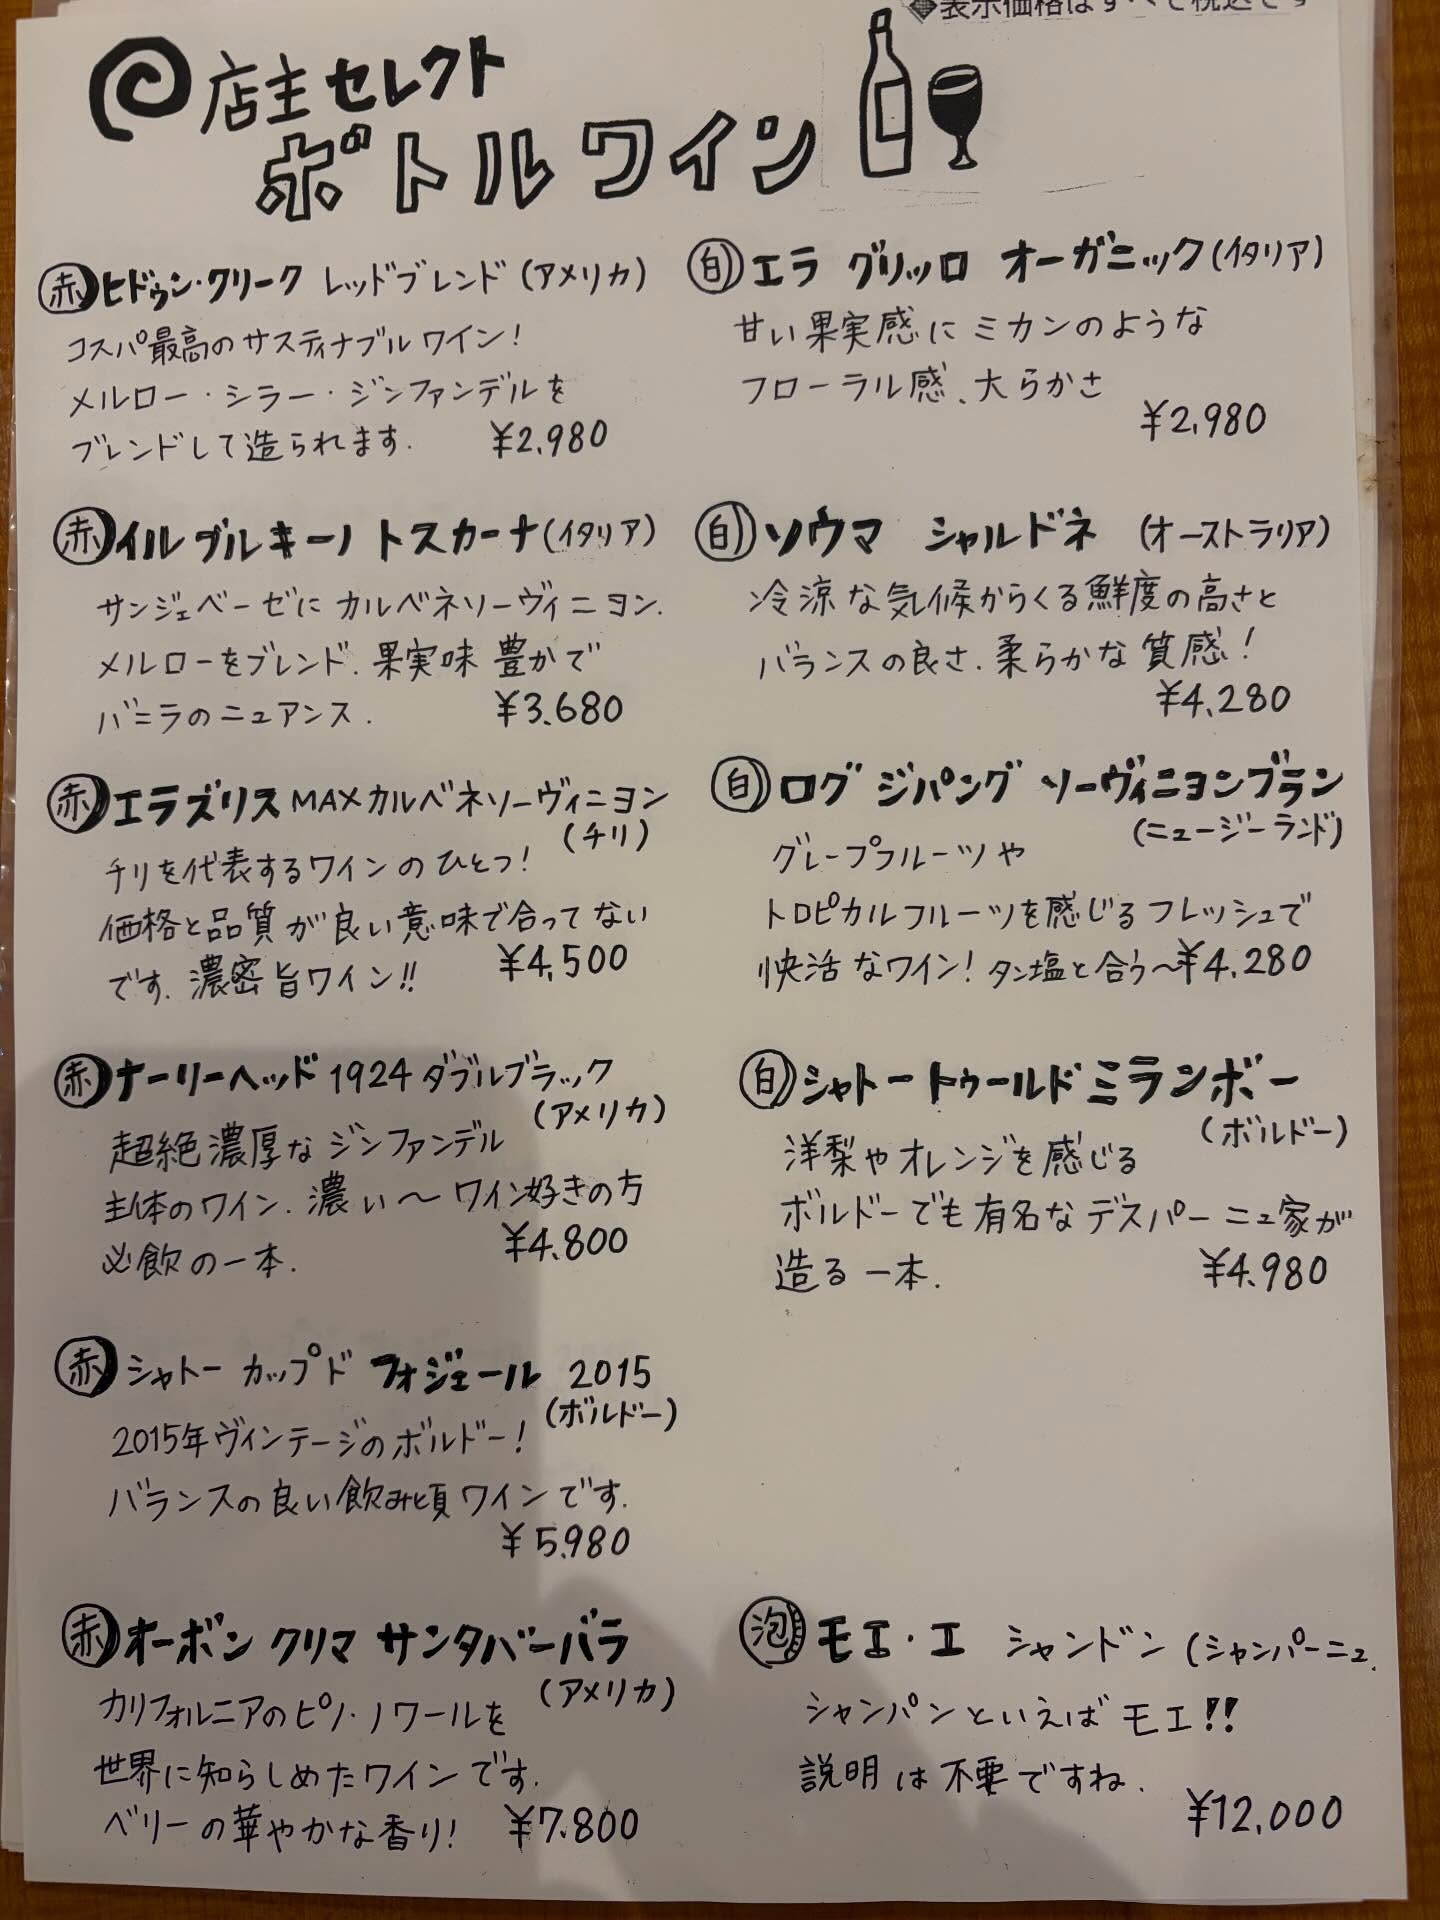 ◆表示価格はすべて税込です
店主セレクト
ボトルワイン
赤 ヒドゥン・クリーク レッドブレンド (アメリカ)
コスパ最高のサスティナブルワイン!
メルロー・シラー・ジンファンデルを
ブレンドして造られます. ¥2,980
赤 イル ブルキーノ トスカーナ (イタリア)
サンジェベーゼにカルベネソーヴィニヨン.
メルローをブレンド. 果実味 豊かで
バニラのニュアンス. ¥3,680
赤 エラズリス MAXカルベネソーヴィニヨン
(チリ)
チリを代表するワインのひとつ!
価格と品質が良い意味で合ってない
です. 濃密旨ワイン!! ¥4,500
赤 ナーリーヘッド 1924 ダブルブラック
(アメリカ)
超絶濃厚なジンファンデル
主体のワイン. 濃い〜ワイン好きの方
必飲の一本. ¥4,800
赤 シャトー カップド フォジェール 2015
(ボルドー)
2015年ヴィンテージのボルドー!
バランスの良い飲み頃ワインです.
¥5,980
赤 オーボン クリマ サンタバーバラ
(アメリカ)
カリフォルニアのピノ・ノワールを
世界に知らしめたワインです.
ベリーの華やかな香り! ¥7,800
白 エラ グリッロ オーガニック (イタリア)
甘い果実感にミカンのような
フローラル感、大らかさ
¥2,980
白 ソウマ シャルドネ (オーストラリア)
冷涼な気候からくる鮮度の高さと
バランスの良さ. 柔らかな質感!
¥4,280
白 ログ ジパング ソーヴィニヨンブラン
(ニュージーランド)
グレープフルーツや
トロピカルフルーツを感じるフレッシュで
快活なワイン! タン塩と合う〜 ¥4,280
白 シャトー トゥールド ミランボー
(ボルドー)
洋梨やオレンジを感じる
ボルドーでも有名なデスパーニュ家が
造る一本. ¥4,980
泡 モエ・エ シャンドン (シャンパーニュ
シャンパンといえばモエ!!
説明は不要ですね.
¥12,000